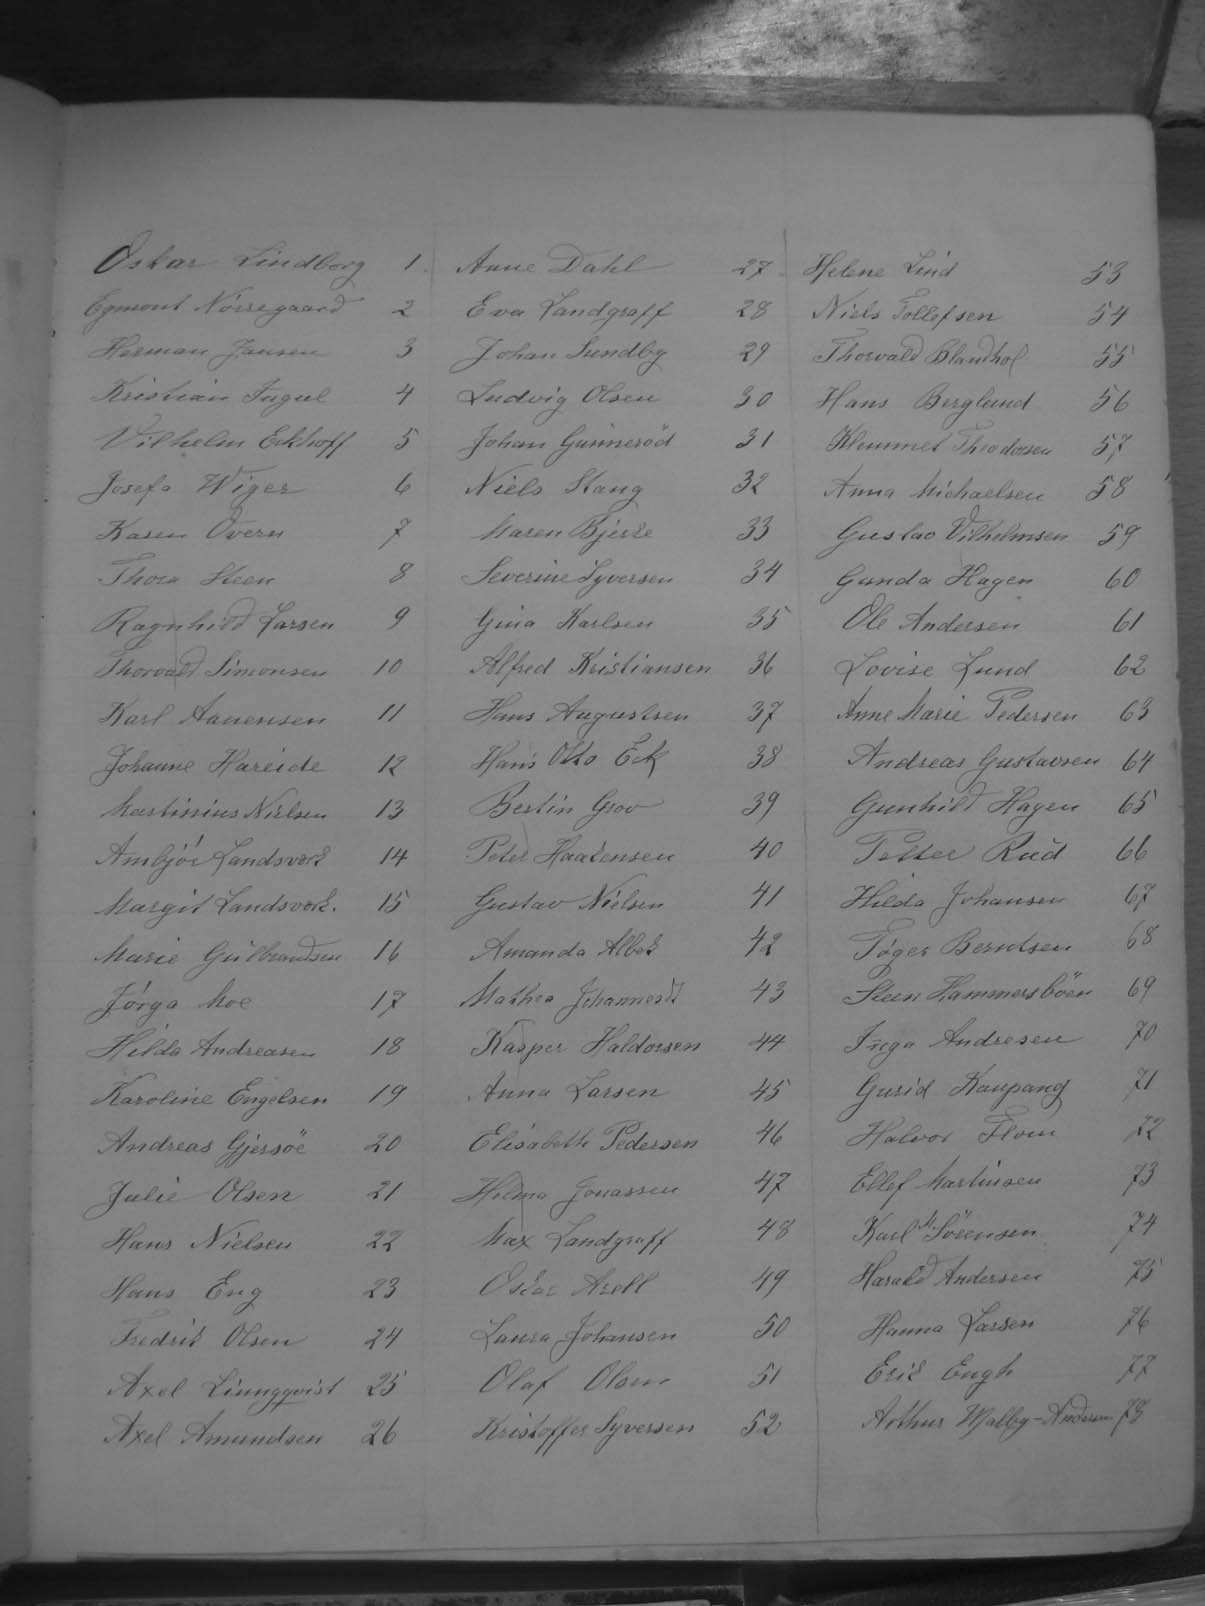 Oskar Lindborg 1
Egmont Nörregaard 2
Herman Jansen 3
Kristian Ingul 4
Vilhelm Eckhoff 5
Josefa Wiger 6
Karen Overn 7
Thora Steen 8
Ragnhild Larsen 9
Thorvald Simonsen 10
Karl Aanensen 11
Johanne Hareide 12
Martinius Nielsen 13
Ambjör Landsverk 14
Margit Landsverk. 15
Marie Gulbrandsen 16
Jörga Moe 17
Hilda Andreasen 18
Karoline Engelsen 19
Andreas Gjersöe 20
Julie Olsen 21
Hans Nielsen 22
Hans Eng 23
Fredrik Olsen 24
Axel Linnqqvist 25
Axel Amundsen 26
Anne Dahl 27
Eva Landgraff 28
Johan Sundby 29
Ludvig Olsen 30
Johan Gunneröd 31
Niels Stang 32
Maren Bjerke 33
Severine Syversen 34
Gina Karlsen 35
Alfred Kristiansen 36
Hans Augustsen 37
Hans Otto Eck 38
Bertin Grov 39
Peter Haakensen 40
Gustav Nielsen 41
Amanda Albek 42
Mathea 43
Kasper Haldorsen 44
Anna Larsen 45
Elisabeth Pedersen 46
Helma Jonassen 47
Max Landgraff 48
Oskar Arell 49
Laura Johansen 50
Olaf Olsen 51
Kristoffer Syversen 52
Helene Lind 53
Niels Tollefsen 54
Thorvald Blandhol 55
Hans Berglund 56
Klemmet Theodorsen 57
Anna Michaelsen 58
Gustav Vilhelmsen 59
Gunda Hagen 60
Ole Andersen 61
Lovise Lund 62
Anne Marie Pedersen 63
Andreas Gustavsen 64
Gunhild Hagen 65
Petter Rud 66
Hilda Johansen 67
Töger Berntsen 68
Steen Hammersböen 69
Inga Andresen 70
Gurid Kaupang 71
Halvor Flom 72
Ellef Martinsen 73
Karl M. Sörensen 74
Harald Andersen 75
Hanna Larsen 76
Erik Engh 77
Arthur Malby-Andersen 78